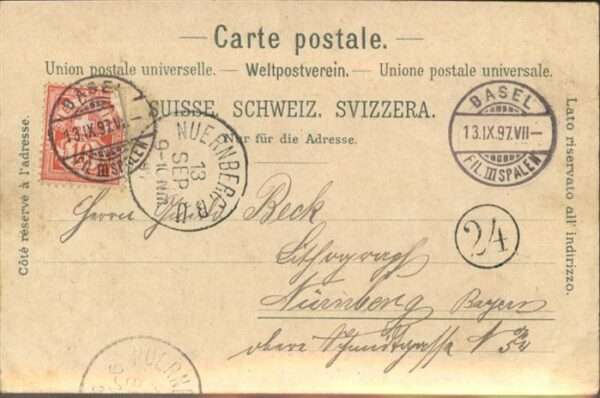 Carte postale.
Union postale universelle. — Weltpostverein. — Unione postale universale.
SUISSE. SCHWEIZ. SVIZZERA.
Nur für die Adresse.
Côté réservé à l'adresse.
Lato riservato all' indirizzo.
BASEL
13.IX.97.VII—
FIL. III SPALEN
BASEL
13.IX.97.VII—
FIL. III SPALEN
NUERNBERG
13
SEP.
9-10 NM.
24
Herrn Beck
Lithograph
Nürnberg Bayern
obere Schmidtgasse N
NUERNB